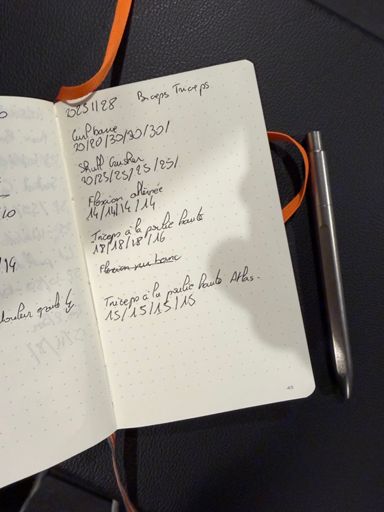 20251128 Biceps Triceps
Curl barre
20/20/30/30/30/
Skull Crusher
20/25/25/25/25/
Flexion alternée
14/14/14/14
Triceps à la poulie haute
18/18/18/16
Flexion sur banc
Triceps à la poulie haute Atlas.
15/15/15/15
/10
/14
douleur
43